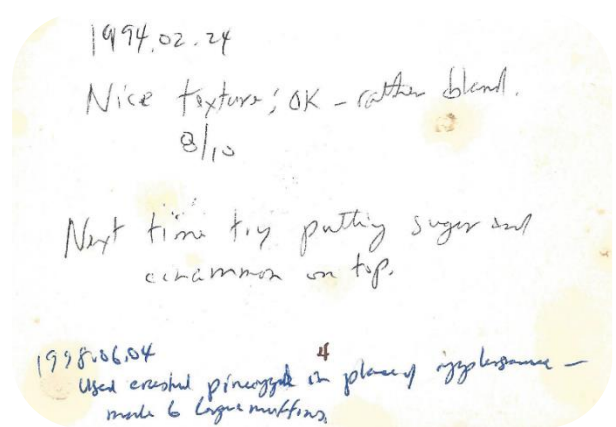 1994.02.24
Nice texture; OK - rather bland.
8/10
Next time try putting sugar and
cinammon on top.
1998.06.04
4
Used crushed pineapple in place of applesauce -
made 6 large muffins.